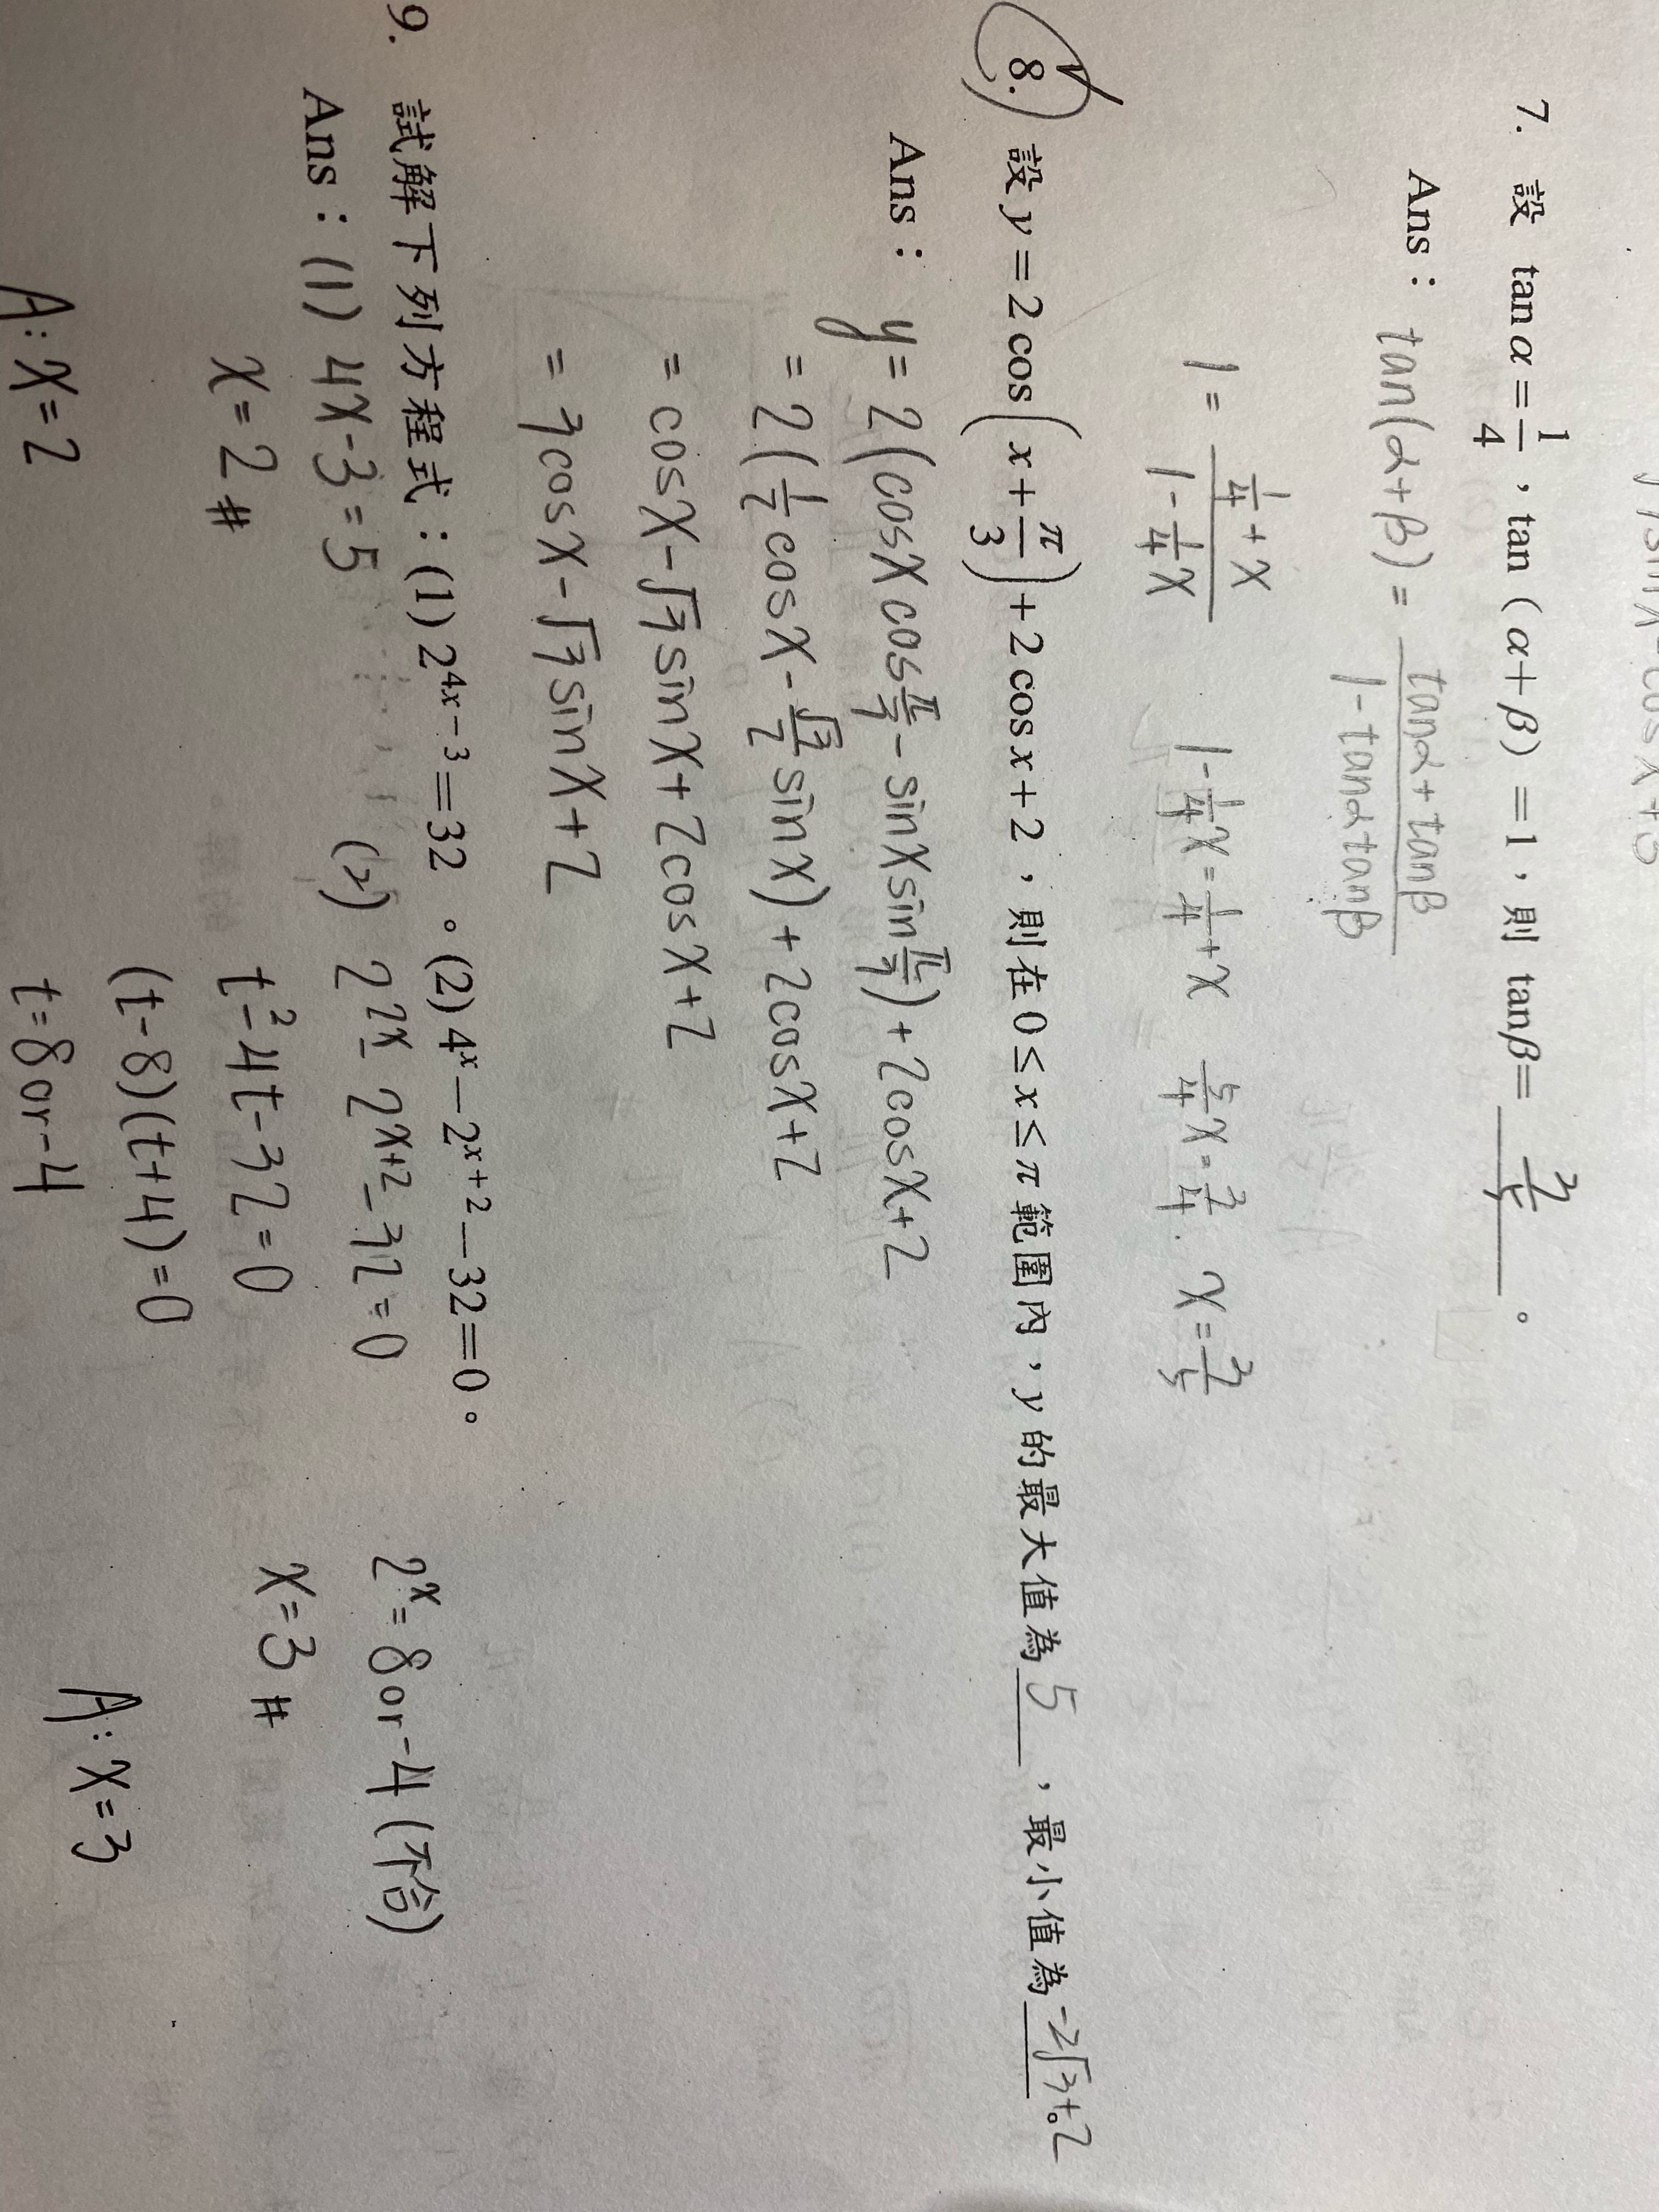 7. 設 tanα=1/4，tan(α+β)=1，則 tanβ= 3/5 。
Ans： tan(α+β) = (tanα+tanβ)/(1-tanαtanβ)
1 = (1/4+x)/(1-1/4x)   1-1/4x=1/4+x   5/4x=3/4.   x=3/5
8. 設 y=2cos(x+π/3)+2cosx+2，則在0≤x≤π範圍內，y的最大值為 5 ，最小值為 -2√3+2 。
Ans： y= 2(cosxcosπ/3 - sinxsinπ/3)+2cosx+2
= 2(1/2cosx-√3/2sinx)+2cosx+2
= cosx-√3sinx+2cosx+2
= 3cosx-√3sinx+2
9. 試解下列方程式：(1) 2^(4x-3)=32 。(2) 4^x-2^(x+2)-32=0。
Ans：(1) 4x-3=5
x=2#
A: x=2
(2) 2^(2x)-2^(x+2)-32=0
t²-4t-32=0
(t-8)(t+4)=0
t=8or-4
2^x=8or-4(不合)
x=3#
A: x=3